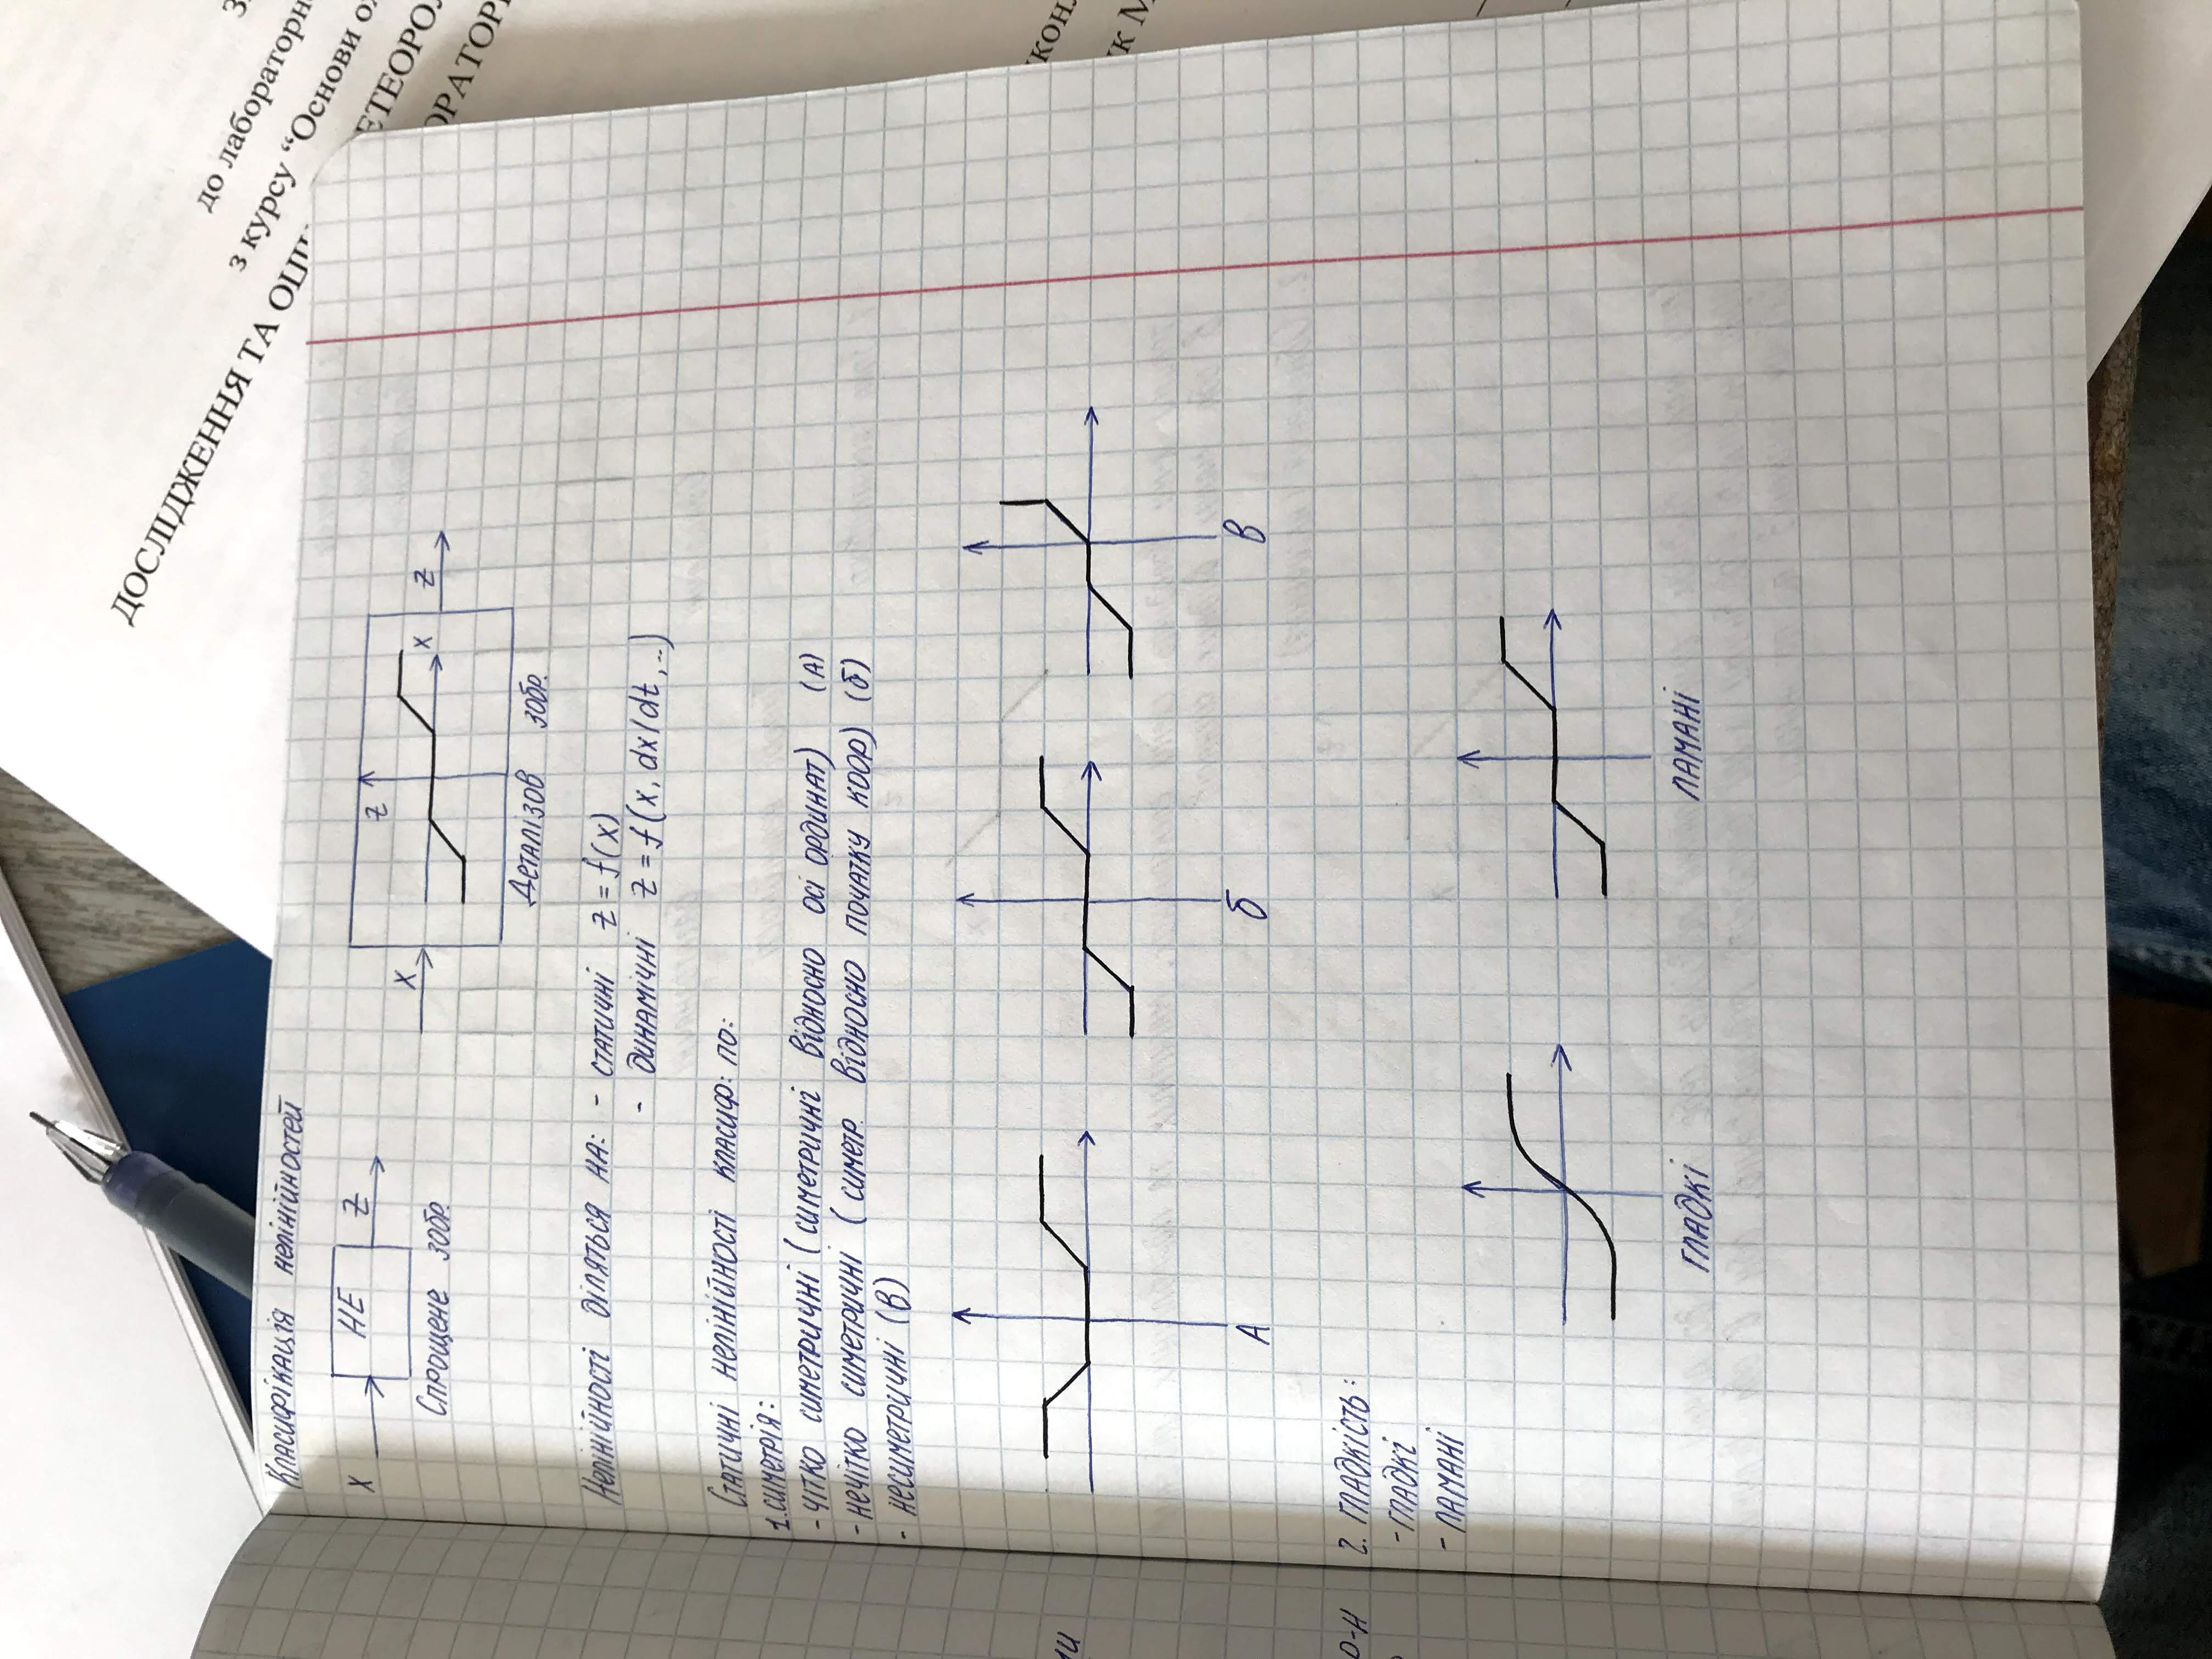 ДОСЛІДЖЕННЯ ТА
до лабораторн
з курсу “Основи
ЕТЕОРОЛ
ОРАТОР
Класифікація нелінійностей
X НЕ Z
Спрощене зобр.
X Z X Z
Деталізов зобр.
Нелінійності діляться на: - статичні z = f(x)
- динамічні z = f(x, dx/dt, ..)
Статичні нелінійності класиф: по:
1. симетрія:
- чітко симетричні (симетричні відносно осі ординат) (А)
- нечітко симетричні (симетр. відносно початку коор) (б)
- несиметричні (в)
А б в
2. гладкість:
- гладкі
- ламані
гладкі ламані